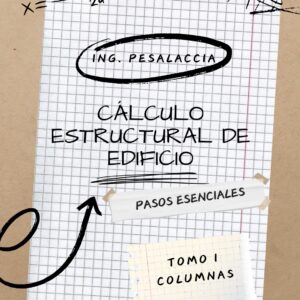 x=
2a
ING. PESALACCIA
CÁLCULO
ESTRUCTURAL DE
EDIFICIO
PASOS ESENCIALES
TOMO I
COLUMNAS